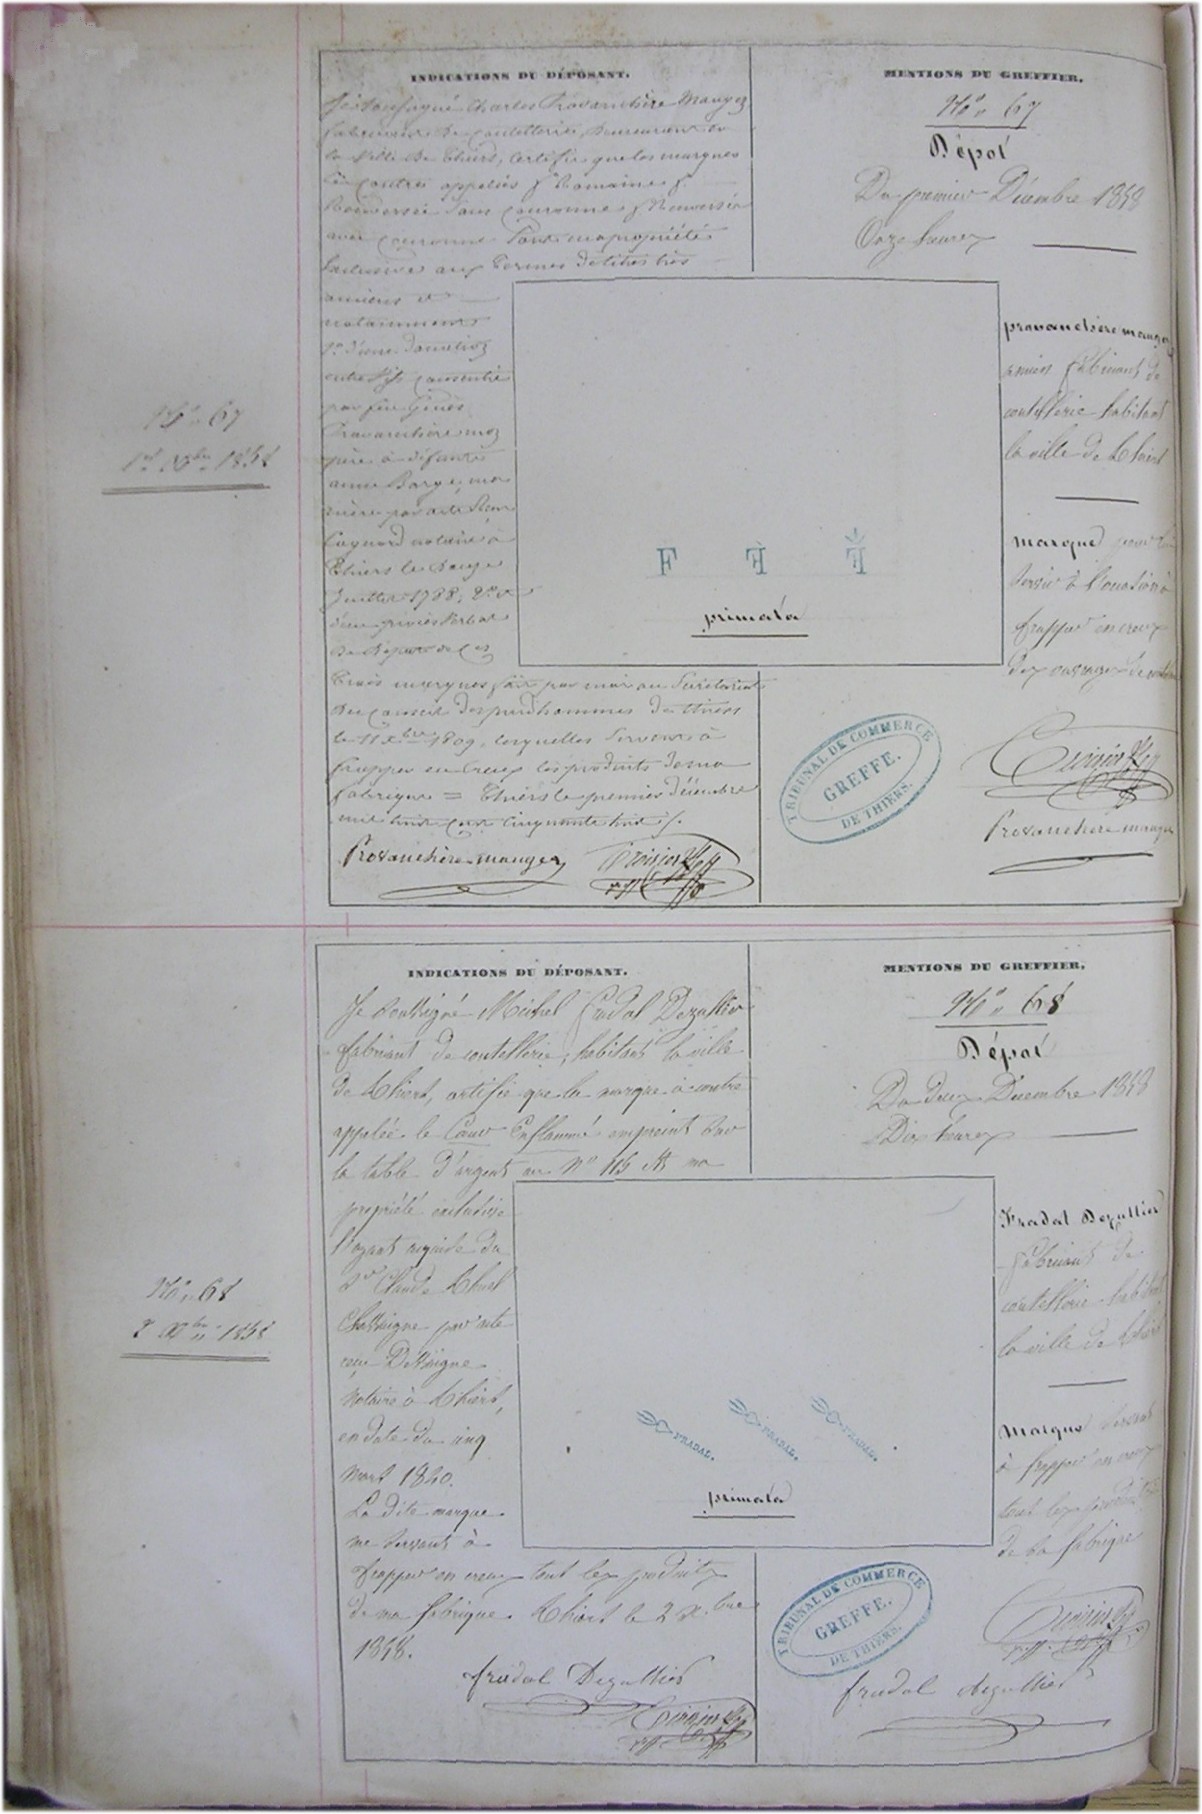 N° 67
1er Xbre 1858
INDICATIONS DU DÉPOSANT.
Je soussigné Charles Provanchère Mauger
fabricant de coutellerie, demeurant en
la ville de Thiers, certifie que les marques
ci contre appelées F Romaine F
Renversée sans couronne F Renversée
avec couronne sont ma propriété
exclusive aux termes de titres très
anciens et
notamment
1° d'une donation
entre vifs consentie
par feu Genès
Provanchère mon
père à défunte
anne Barge, ma
mère par acte
notaire à
Thiers le
Juillet 1788, 2° et
d'un procès verbal
de dépôt de ces
trois marques fait par moi au Secrétariat
du conseil des prud'hommes de Thiers
le 11 Xbre 1809, lesquelles servent à
frapper en creux les produits de ma
fabrique = Thiers le premier décembre
mil huit cent cinquante huit /.
Provanchère mauger
MENTIONS DU GREFFIER.
N° 67
Dépôt
Du premier Décembre 1858
Onze heures
F F F
primata
provanchère mauger
ancien fabricant de
coutellerie habitant
la ville de Thiers
marque pour lui
servir à l'occasion à
frapper en creux
des ouvrages de
TRIBUNAL DE COMMERCE
GREFFE.
DE THIERS.
Provanchère mauger
N° 68
2 Xbre 1858
INDICATIONS DU DÉPOSANT.
Je soussigné Michel Fradal Dozullier
fabricant de coutellerie, habitant la ville
de Thiers, certifie que la marque ci contre
appelée le Cœur Enflammé empreint sur
la table d'argent au N° 115 est ma
propriété exclusive
l'ayant acquise du
Sr Claude
Chassaigne par acte
reçu
Notaire à Thiers,
en date du cinq
Mars 1840.
La dite marque
me servant à
frapper en creux tous les produits
de ma fabrique. Thiers le 2 Xbre
1858.
fradal Dozullier
MENTIONS DU GREFFIER.
N° 68
Dépôt
Du deux Décembre 1858
Dix heures
FRADAL. FRADAL. FRADAL.
primata
Fradal Dozullier
fabricant de
coutellerie habitant
la ville de Thiers
Marque servant
à frapper en creux
tous les produits
de sa fabrique
TRIBUNAL DE COMMERCE
GREFFE.
DE THIERS.
fradal dozullier